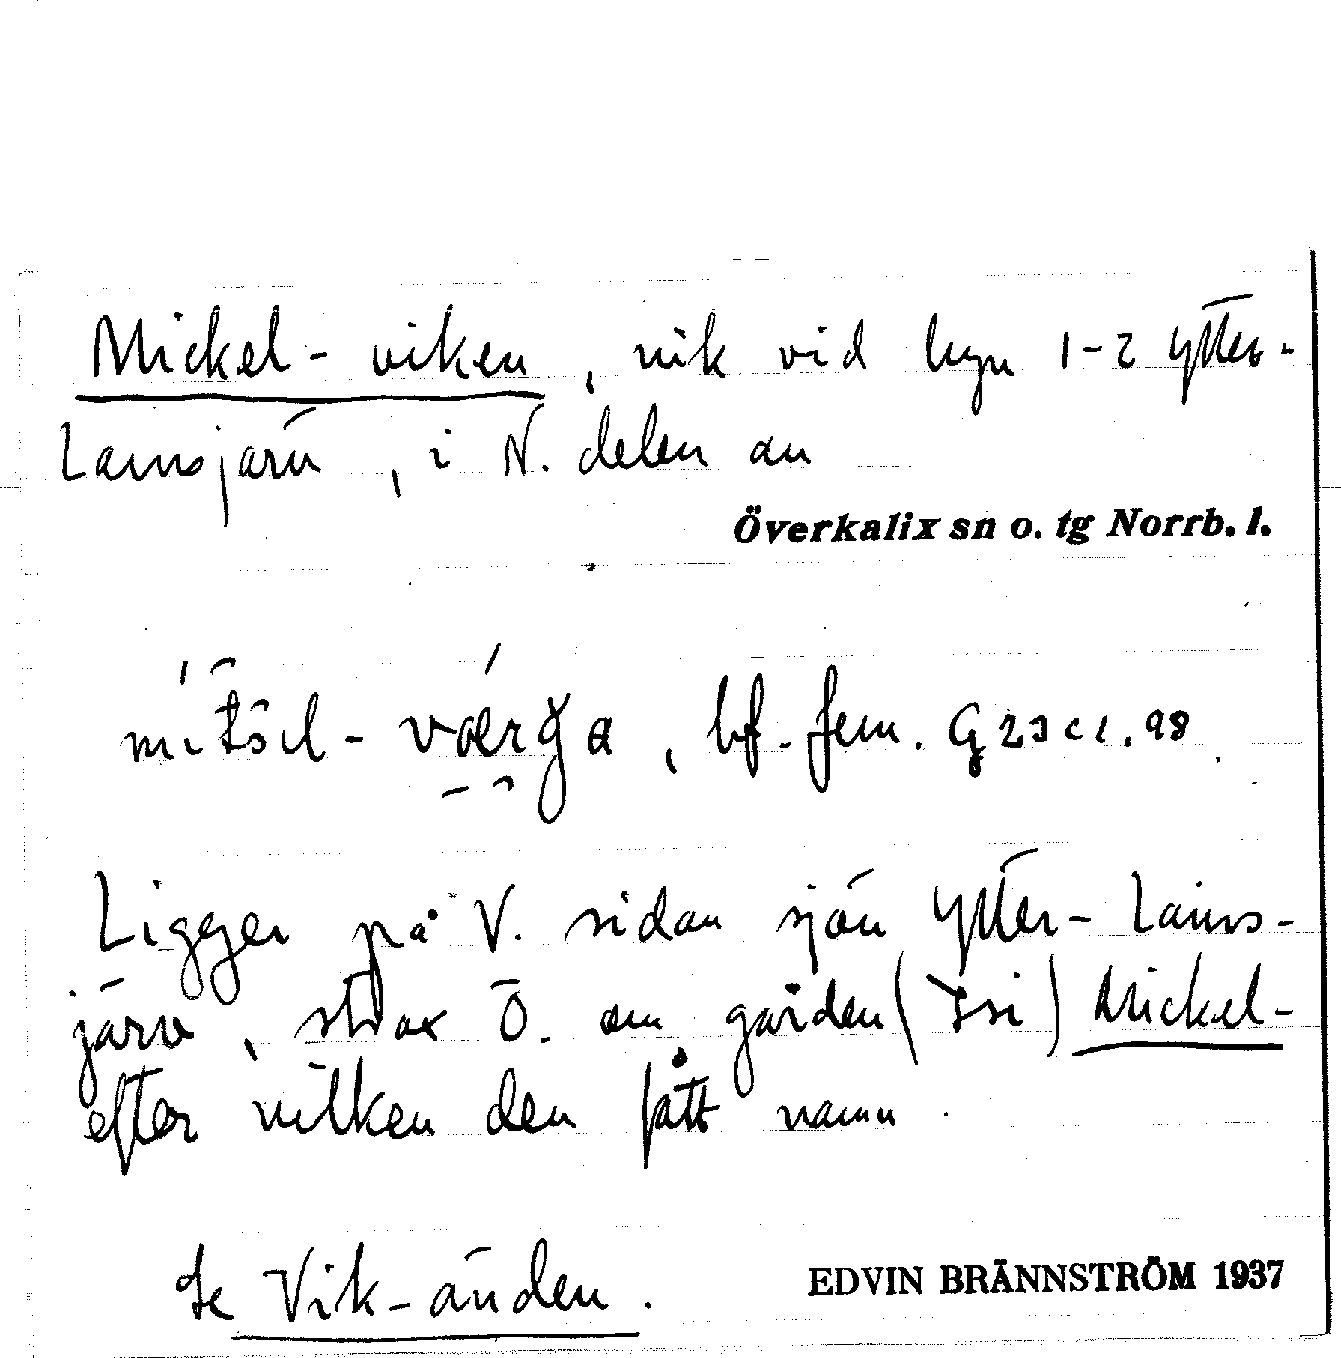 Mickel-viken, vik vid byn 1-2 Ytter-
Lansjärv, i N. delen av
Överkalix sn o. tg Norrb. l.
bf. fem. G 23 c 1. 98
Ligger på V. sidan sjön Ytter-Lans-
järv, strax Ö. om gården (Isi) Mickel-
efter vilken den fått namn.
Se Vik-änden.
EDVIN BRÄNNSTRÖM 1937